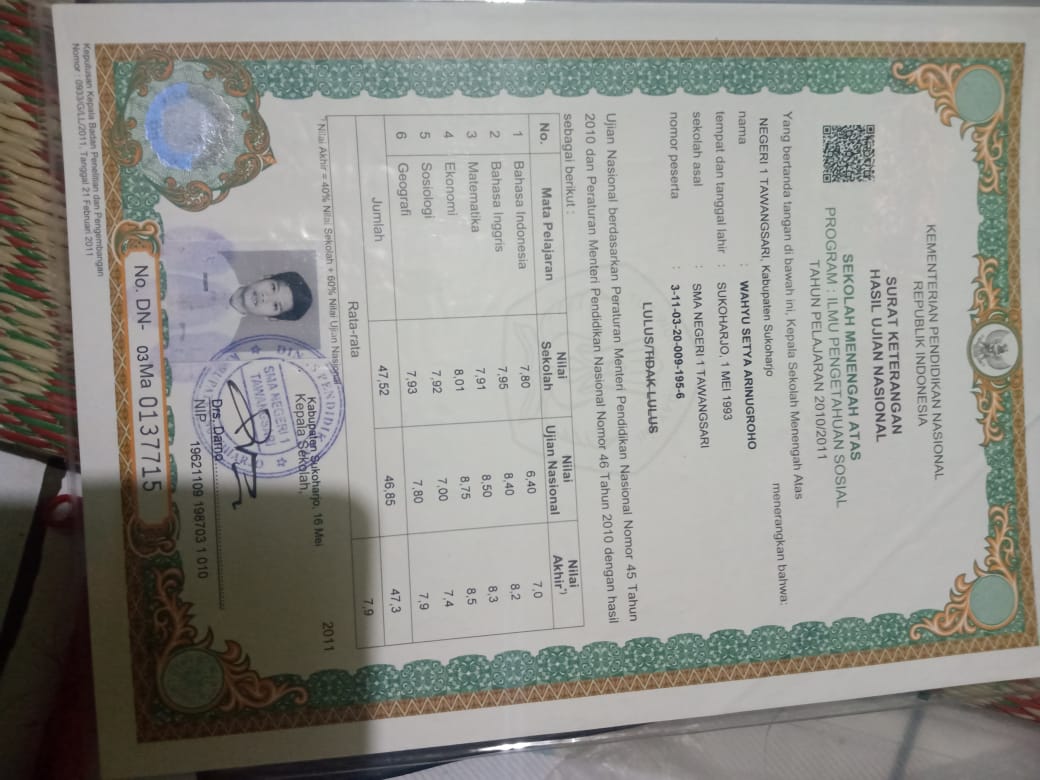 KEMENTERIAN PENDIDIKAN NASIONAL
REPUBLIK INDONESIA
SURAT KETERANGAN
HASIL UJIAN NASIONAL
SEKOLAH MENENGAH ATAS
PROGRAM : ILMU PENGETAHUAN SOSIAL
TAHUN PELAJARAN 2010/2011
Yang bertanda tangan di bawah ini, Kepala Sekolah Menengah Atas
NEGERI 1 TAWANGSARI, Kabupaten Sukoharjo menerangkan bahwa:
nama : WAHYU SETYA ARINUGROHO
tempat dan tanggal lahir : SUKOHARJO, 1 MEI 1993
sekolah asal : SMA NEGERI 1 TAWANGSARI
nomor peserta : 3-11-03-20-009-195-6
LULUS/TIDAK LULUS
Ujian Nasional berdasarkan Peraturan Menteri Pendidikan Nasional Nomor 45 Tahun
2010 dan Peraturan Menteri Pendidikan Nasional Nomor 46 Tahun 2010 dengan hasil
sebagai berikut :
No. Mata Pelajaran Nilai Sekolah Nilai Ujian Nasional Nilai Akhir*)
1 Bahasa Indonesia 7,80 6,40 7,0
2 Bahasa Inggris 7,95 8,40 8,2
3 Matematika 7,91 8,50 8,3
4 Ekonomi 8,01 8,75 8,5
5 Sosiologi 7,92 7,00 7,4
6 Geografi 7,93 7,80 7,9
Jumlah 47,52 46,85 47,3
Rata-rata 7,9
*)Nilai Akhir = 40% Nilai Sekolah + 60% Nilai Ujian Nasional
Kabupaten Sukoharjo, 16 Mei 2011
Kepala Sekolah,
SMA NEGERI 1
TAWANGSARI
Drs. Darno
NIP. 19621109 198703 1 010
No. DN- 03Ma 0137715
Keputusan Kepala Badan Penelitian dan Pengembangan
Nomor : 0933/G/LL/2011, Tanggal 21 Februari 2011